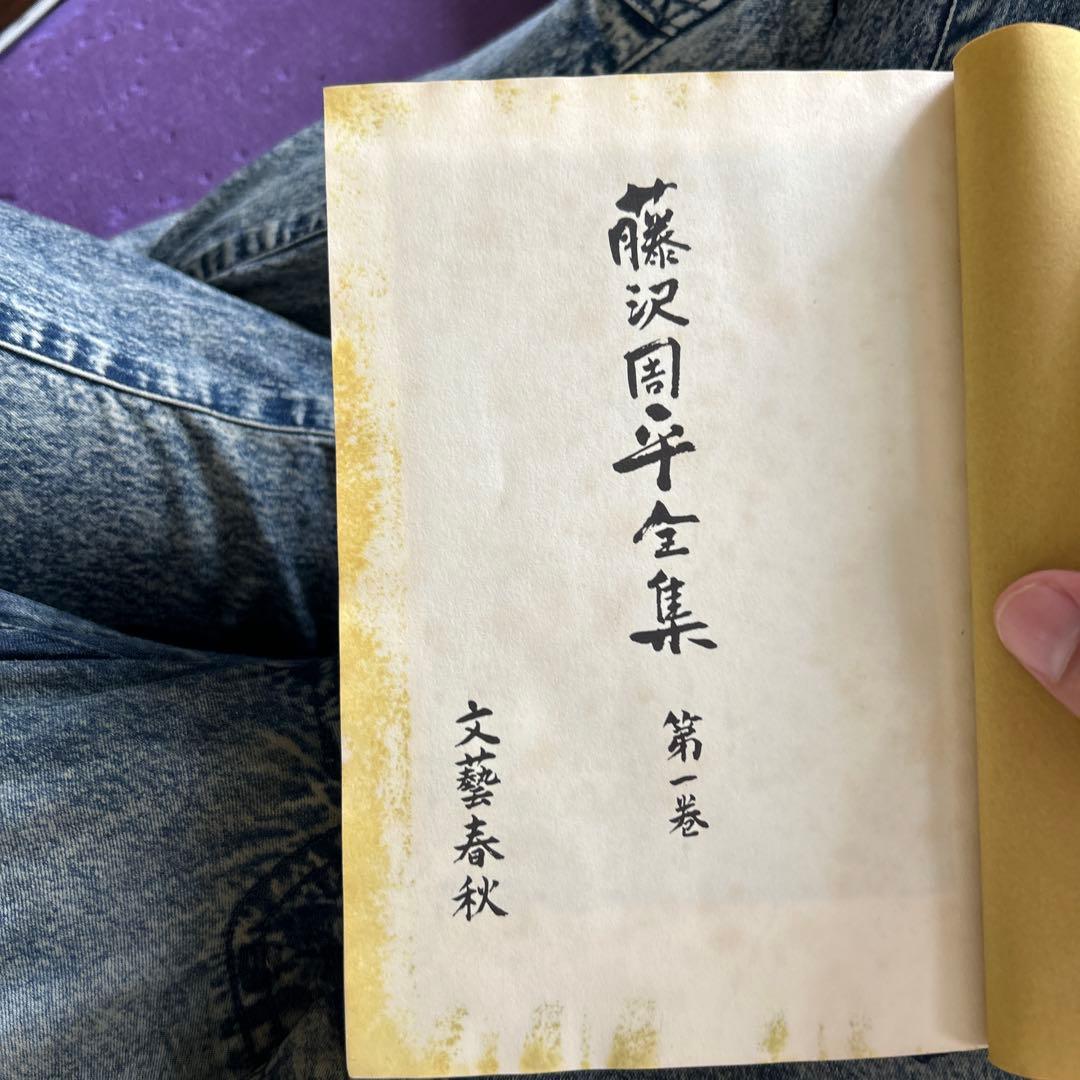 藤沢周平全集
第一巻
文藝春秋